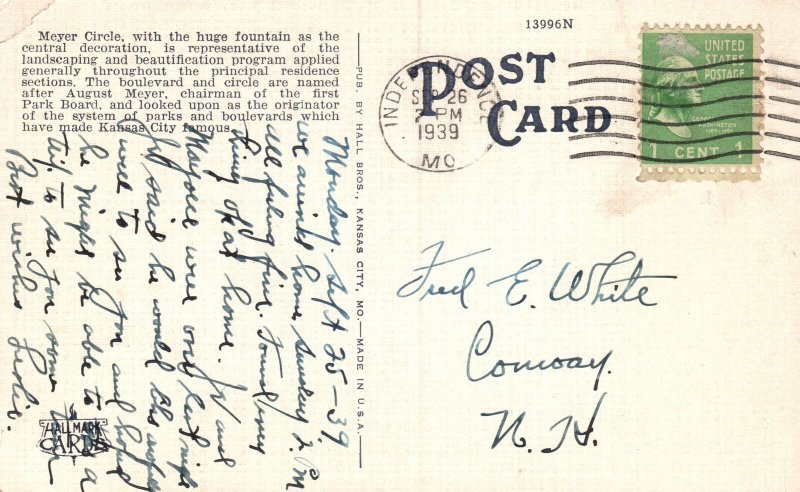 Meyer Circle, with the huge fountain as the
central decoration, is representative of the
landscaping and beautification program applied
generally throughout the principal residence
sections. The boulevard and circle are named
after August Meyer, chairman of the first
Park Board, and looked upon as the originator
of the system of parks and boulevards which
have made Kansas City famous.
13996N
POST
CARD
INDEPENDENCE
SEP 26
2 PM
1939
MO.
UNITED
STATES
POSTAGE
GEORGE
WASHINGTON
1 CENT 1
PUB. BY HALL BROS., KANSAS CITY, MO.—MADE IN U.S.A.
Monday. Sept 25-39
we home Sunday P.M
all feeling fine.
thing ok at home.
were over last night
said he would like
well to see you and
he might be able to a
trip to see you some
Best wishes Leslie.
Fred E. White
Conway.
N. H.
HALLMARK
CARDS